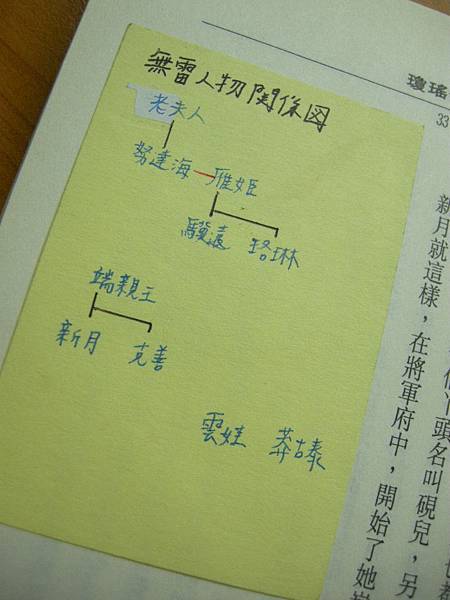 無雷人物関係図
老夫人
努達海 雁姬
驥遠 珞琳
端親王
新月 克善
雲娃 莽古泰
瓊瑤
33
新月就這樣，在將軍府中，開始了她
個丫頭名叫硯兒，另
也都